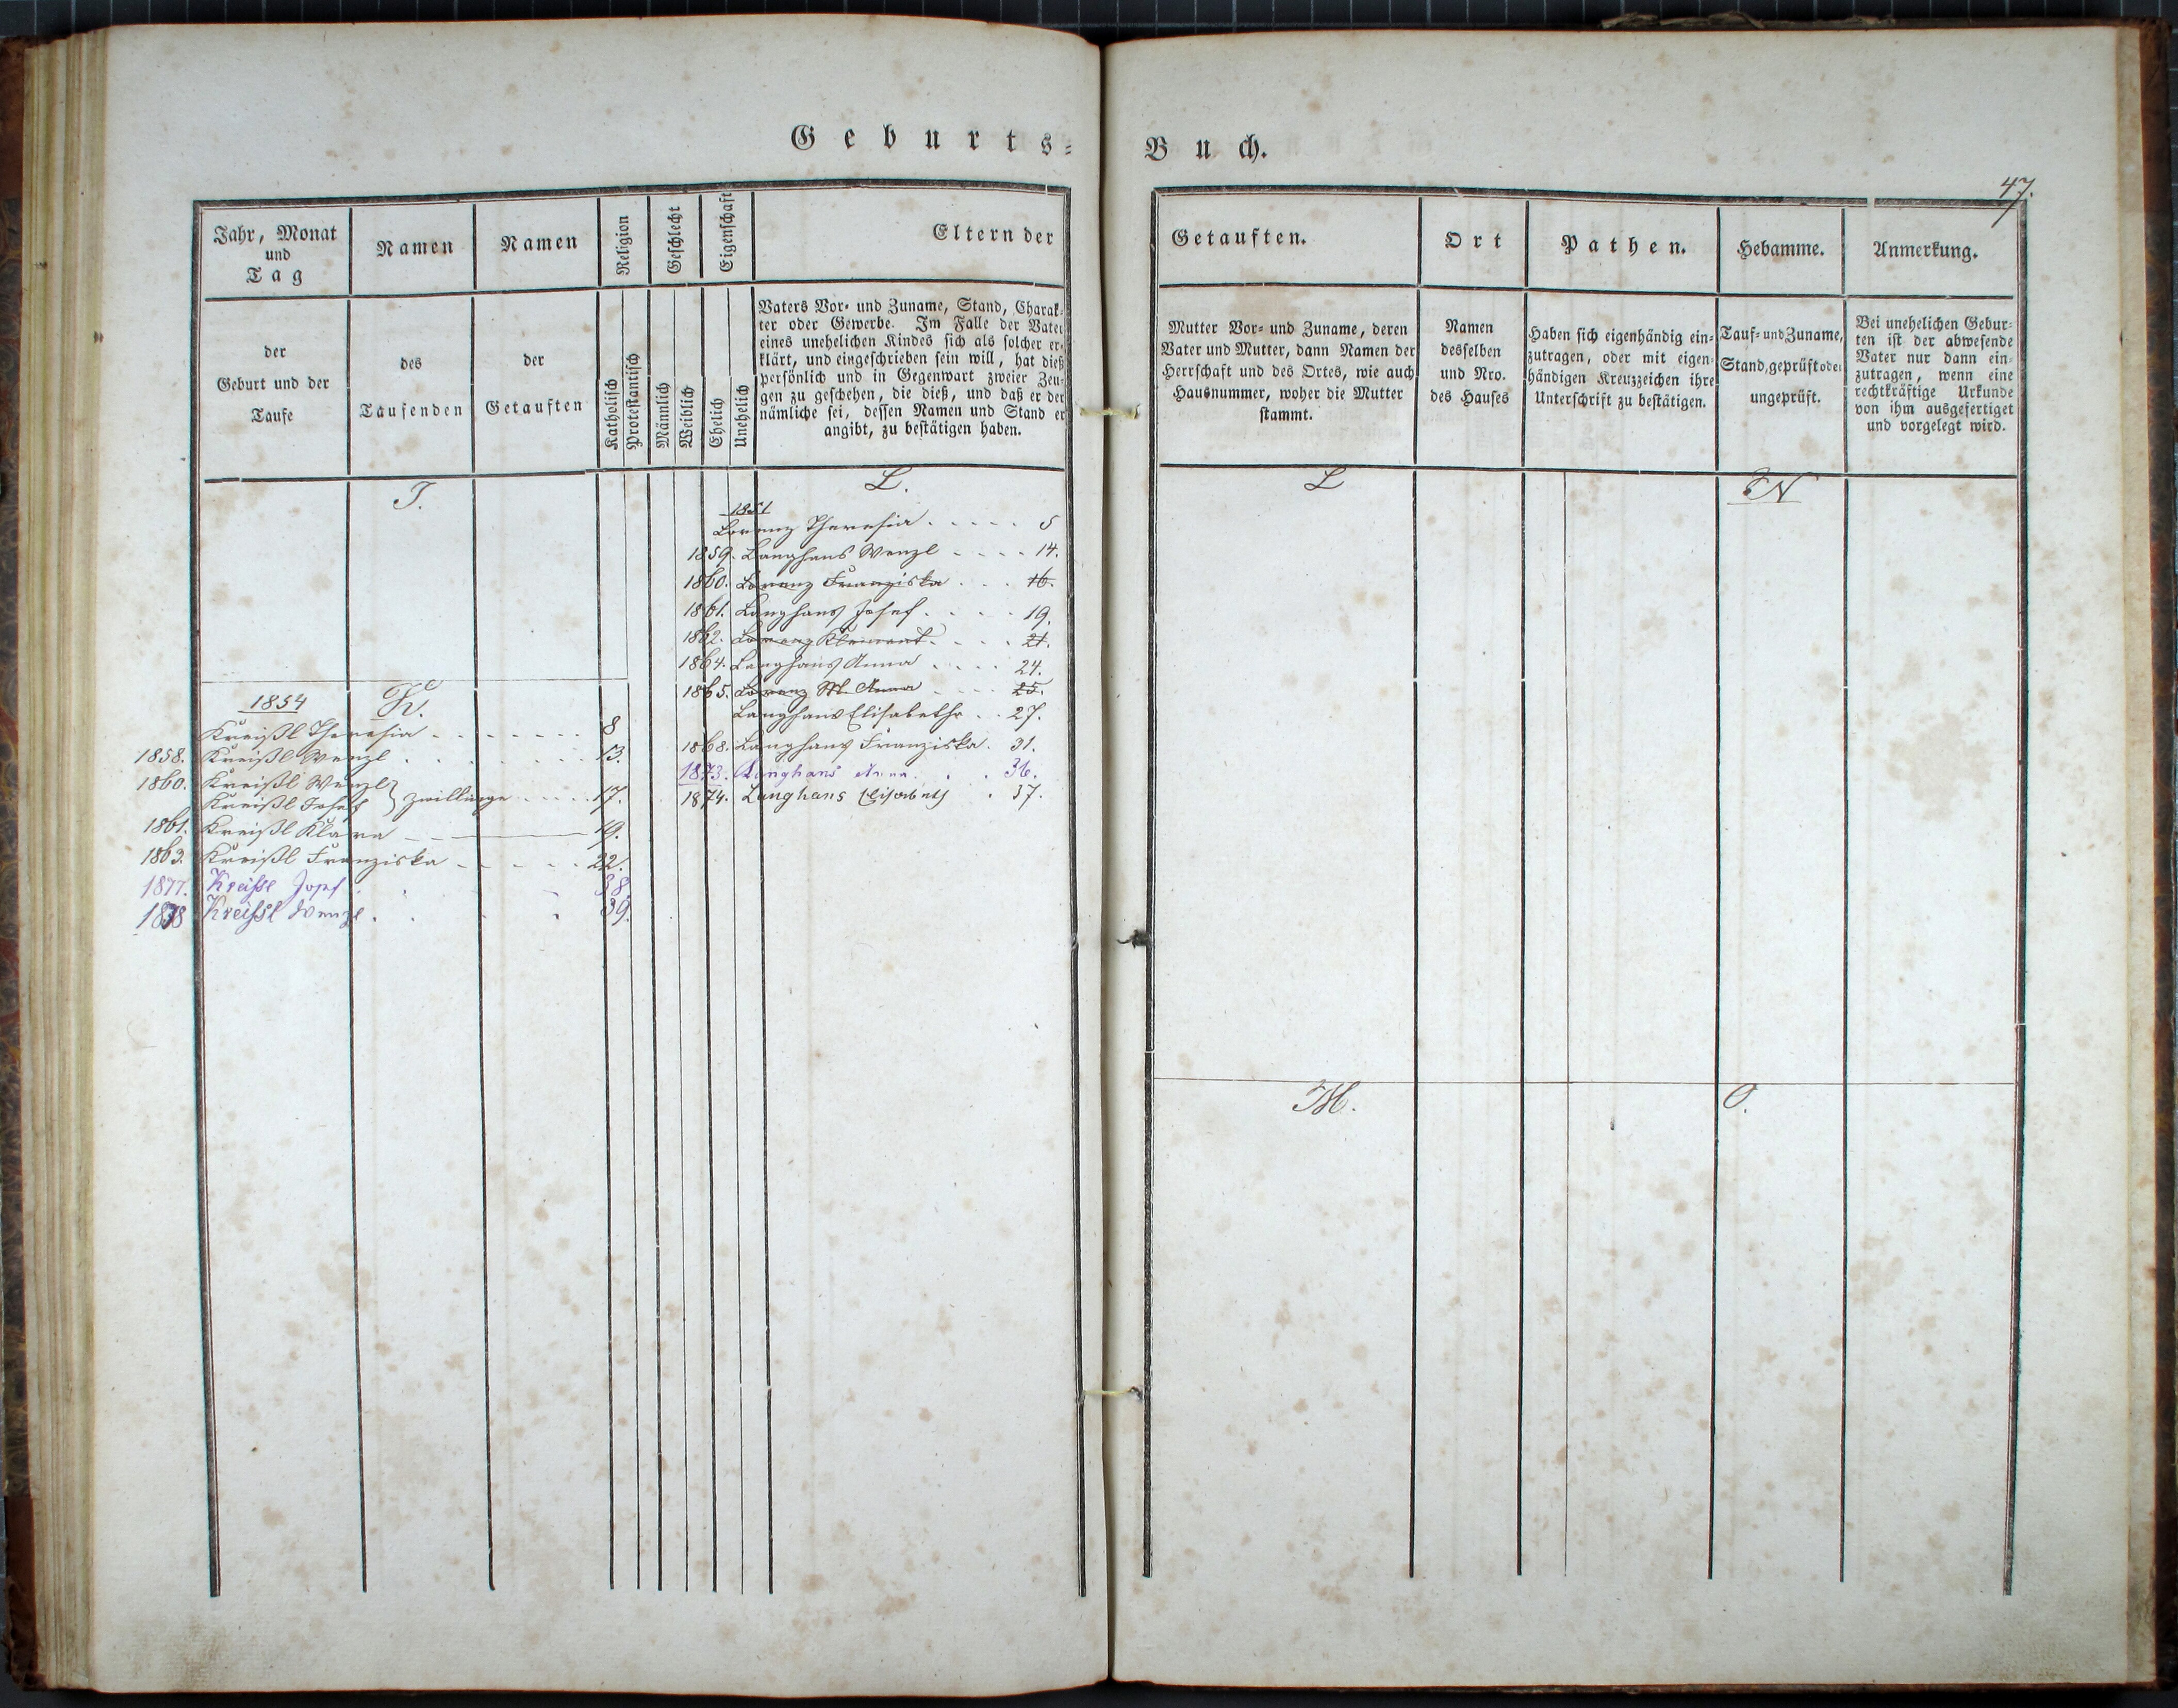 Geburts=
Jahr, Monat
und
Tag
der
Geburt und der
Taufe
Namen
des
Taufenden
Namen
der
Getauften
Religion
Katholisch
Protestantisch
Geschlecht
Männlich
Weiblich
Eigenschaft
Ehelich
Unehelich
Eltern der
Vaters Vor= und Zuname, Stand, Charak=
ter oder Gewerbe. Im Falle der Vater
eines unehelichen Kindes sich als solcher er=
klärt, und eingeschrieben sein will, hat dieß
persönlich und in Gegenwart zweier Zeu=
gen zu geschehen, die dieß, und daß er der
nämliche sei, dessen Namen und Stand er
angibt, zu bestätigen haben.
I.
1854 K.
Kreißl Theresia 8
1858. Kreißl Wenzl 13.
1860. Kreißl Wenzl
Kreißl Josef } Zwillinge 17.
1861. Kreißl Klara 19.
1863. Kreißl Franziska 22.
1877. Kreißl Josef 38
1878 Kreißl Wenzl 39.
L.
1851
Lorenz Theresia 5
1859. Langhans Wenzl 14.
1860. Lorenz Franziska 16.
1861. Langhans Josef 19.
1862. Lorenz Klement 21.
1864. Langhans Anna 24.
1865. Lorenz M. Anna 25.
Langhans Elisabeth 27.
1868. Langhans Franziska. 31.
1873. Langhans Anna 36.
1874. Langhans Elisabeth 37.
Buch.
47.
Getauften.
Mutter Vor= und Zuname, deren
Vater und Mutter, dann Namen der
Herrschaft und des Ortes, wie auch
Hausnummer, woher die Mutter
stammt.
Ort
Namen
desselben
und Nro.
des Hauses
Pathen.
Haben sich eigenhändig ein=
zutragen, oder mit eigen=
händigen Kreuzzeichen ihre
Unterschrift zu bestätigen.
Hebamme.
Tauf= und Zuname,
Stand, geprüft oder
ungeprüft.
Anmerkung.
Bei unehelichen Gebur=
ten ist der abwesende
Vater nur dann ein=
zutragen, wenn eine
rechtkräftige Urkunde
von ihm ausgefertiget
und vorgelegt wird.
L
N
M.
O.